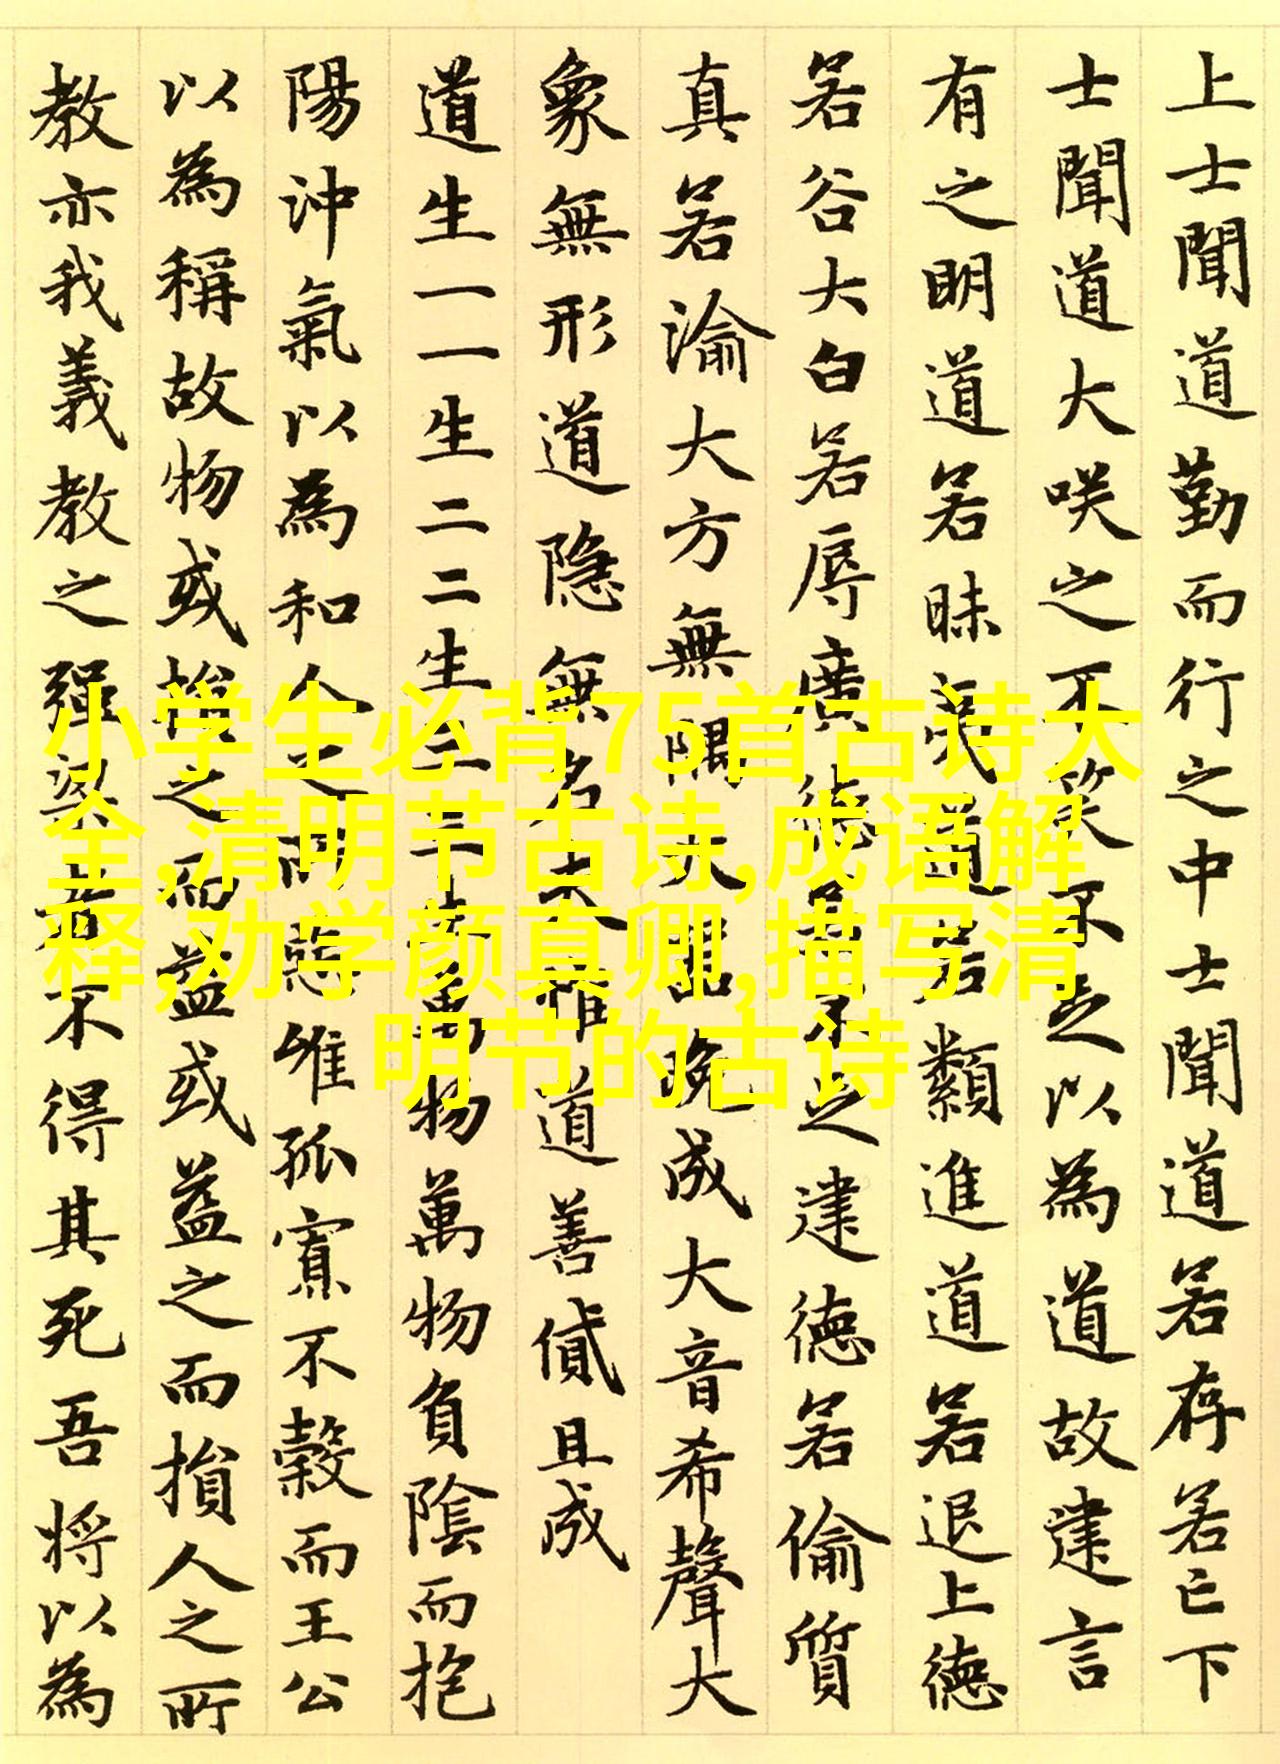 上士聞道勤而行之中士聞道若存若亡下
士聞道大咲之不笑不足以為道故建言
有之明道若昧夷道若類進道若退上德
若谷大白若辱廣德若不足建德若偷質
真若渝大方無隅大器晚成大音希聲大
象無形道隐無名夫惟道善貸且成
道生一一生二二生三三生萬物萬物負陰而抱
陽沖氣以為和人之所惡唯孤寡不穀而王公
以為稱故物或損之而益或益之而損人之所
教亦我義教之强梁者不得其死吾将以為
小学生必背75首古诗大
全,清明节古诗,成语解
释,劝学颜真卿,描写清
明节的古诗